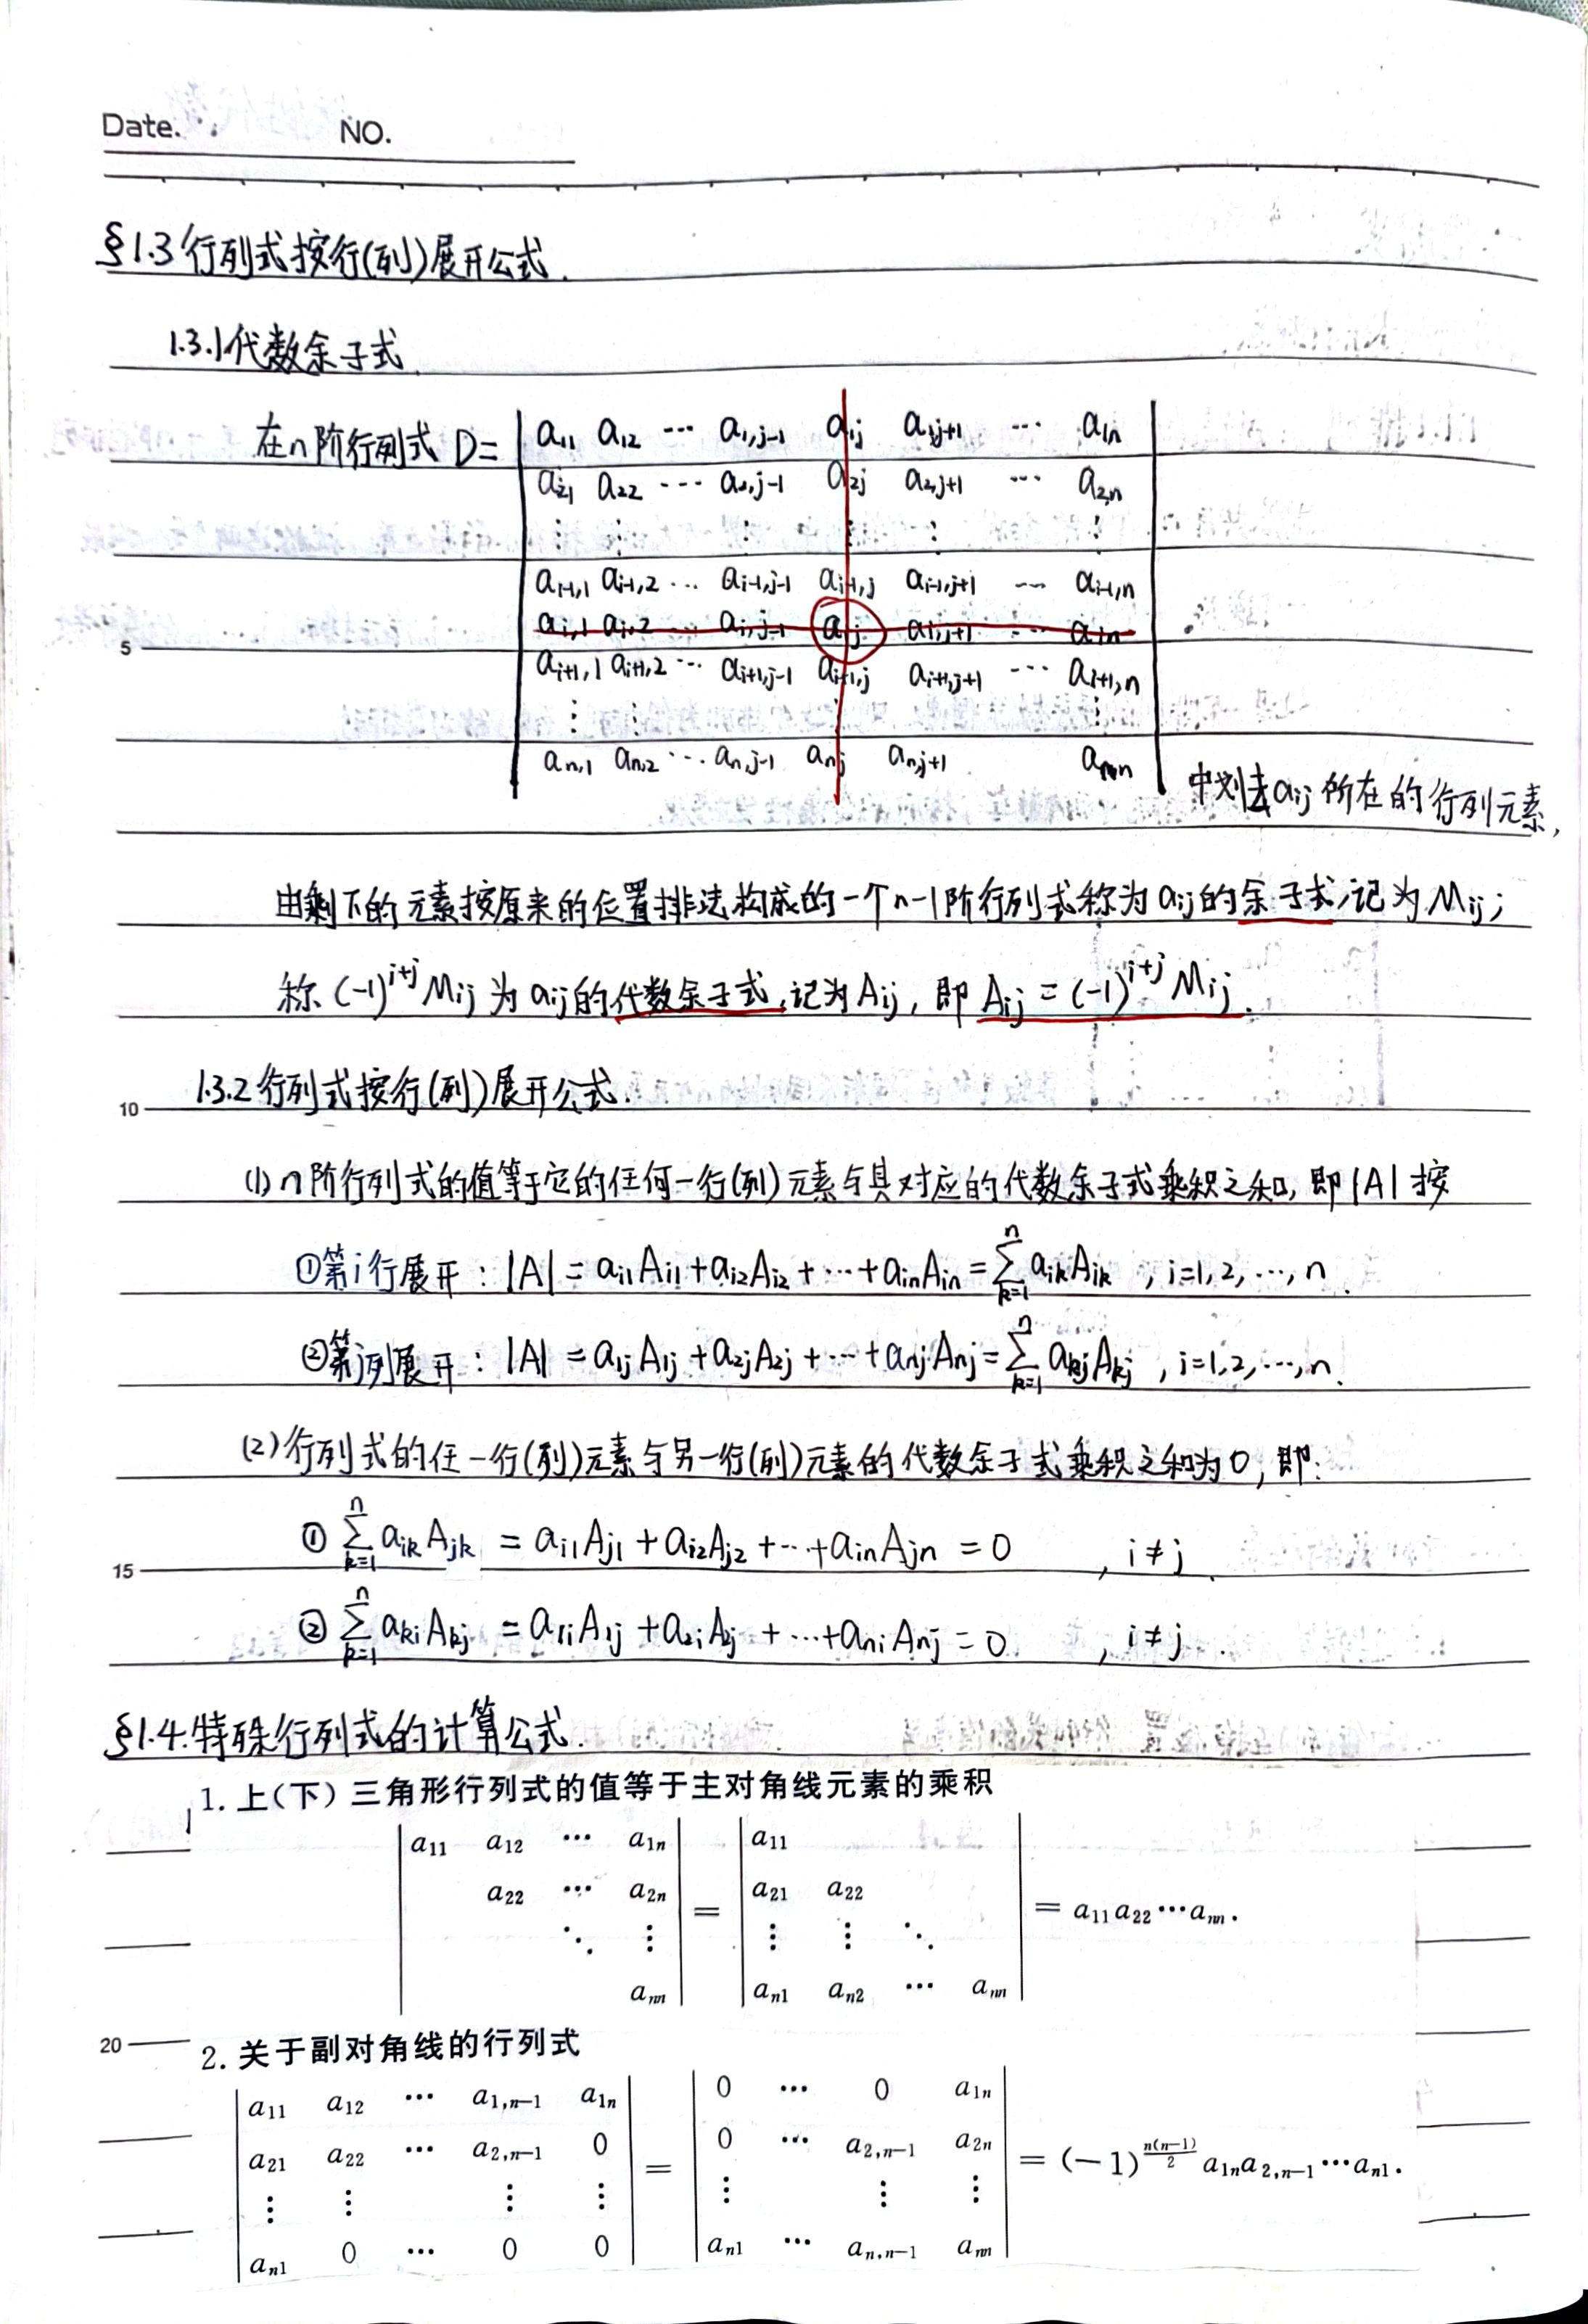 Date. NO.
§1.3 行列式按行(列)展开公式.
1.3.1 代数余子式.
在n阶行列式 D= | a11 a12 ··· a1,j-1 a1j a1,j+1 ··· a1n |
a21 a22 ··· a2,j-1 a2j a2,j+1 ··· a2,n
⋮ ⋮ ⋮ ⋮ ⋮ ⋮
ai-1,1 ai-1,2 ··· ai-1,j-1 ai-1,j ai-1,j+1 ··· ai-1,n
ai,1 ai,2 ··· ai,j-1 aij ai,j+1 ··· ain
5
ai+1,1 ai+1,2 ··· ai+1,j-1 ai+1,j ai+1,j+1 ··· ai+1,n
⋮ ⋮ ⋮ ⋮
an,1 an,2 ··· an,j-1 anj an,j+1 an,n
中划去aij所在的行列元素,
由剩下的元素按原来的位置排法构成的一个n-1阶行列式称为aij的余子式,记为Mij;
称(-1)^{i+j}Mij为aij的代数余子式,记为Aij, 即Aij=(-1)^{i+j}Mij.
1.3.2 行列式按行(列)展开公式.
10
(1) n阶行列式的值等于它的任何一行(列)元素与其对应的代数余子式乘积之和, 即|A|按
①第i行展开: |A| = ai1Ai1+ai2Ai2+···+ainAin=∑_{k=1}^{n}aikAik , i=1,2,···,n.
②第j列展开: |A| = a1jA1j+a2jA2j+···+anjAnj=∑_{k=1}^{n}akjAkj , i=1,2,···,n.
(2)行列式的任一行(列)元素与另一行(列)元素的代数余子式乘积之和为0, 即:
① ∑_{k=1}^{n}aikAjk = ai1Aj1+ai2Aj2+···+ainAjn = 0 , i≠j.
15
② ∑_{k=1}^{n}akiAkj = a1iA1j+a2iA2j+···+aniAnj = 0 , i≠j.
§1.4.特殊行列式的计算公式.
1. 上(下)三角形行列式的值等于主对角线元素的乘积
| a11 a12 ··· a1n | | a11 |
a22 ··· a2n a21 a22
= = a11a22···ann.
⋱ ⋮ ⋮ ⋮ ⋱
ann an1 an2 ··· ann
20
2. 关于副对角线的行列式
| a11 a12 ··· a1,n−1 a1n | | 0 ··· 0 a1n |
a21 a22 ··· a2,n−1 0 0 ··· a2,n−1 a2n
= = (−1)^{n(n−1)/2} a1na2,n−1···an1.
⋮ ⋮ ⋮ ⋮ ⋮ ⋮ ⋮
an1 0 ··· 0 0 an1 ··· an,n−1 ann